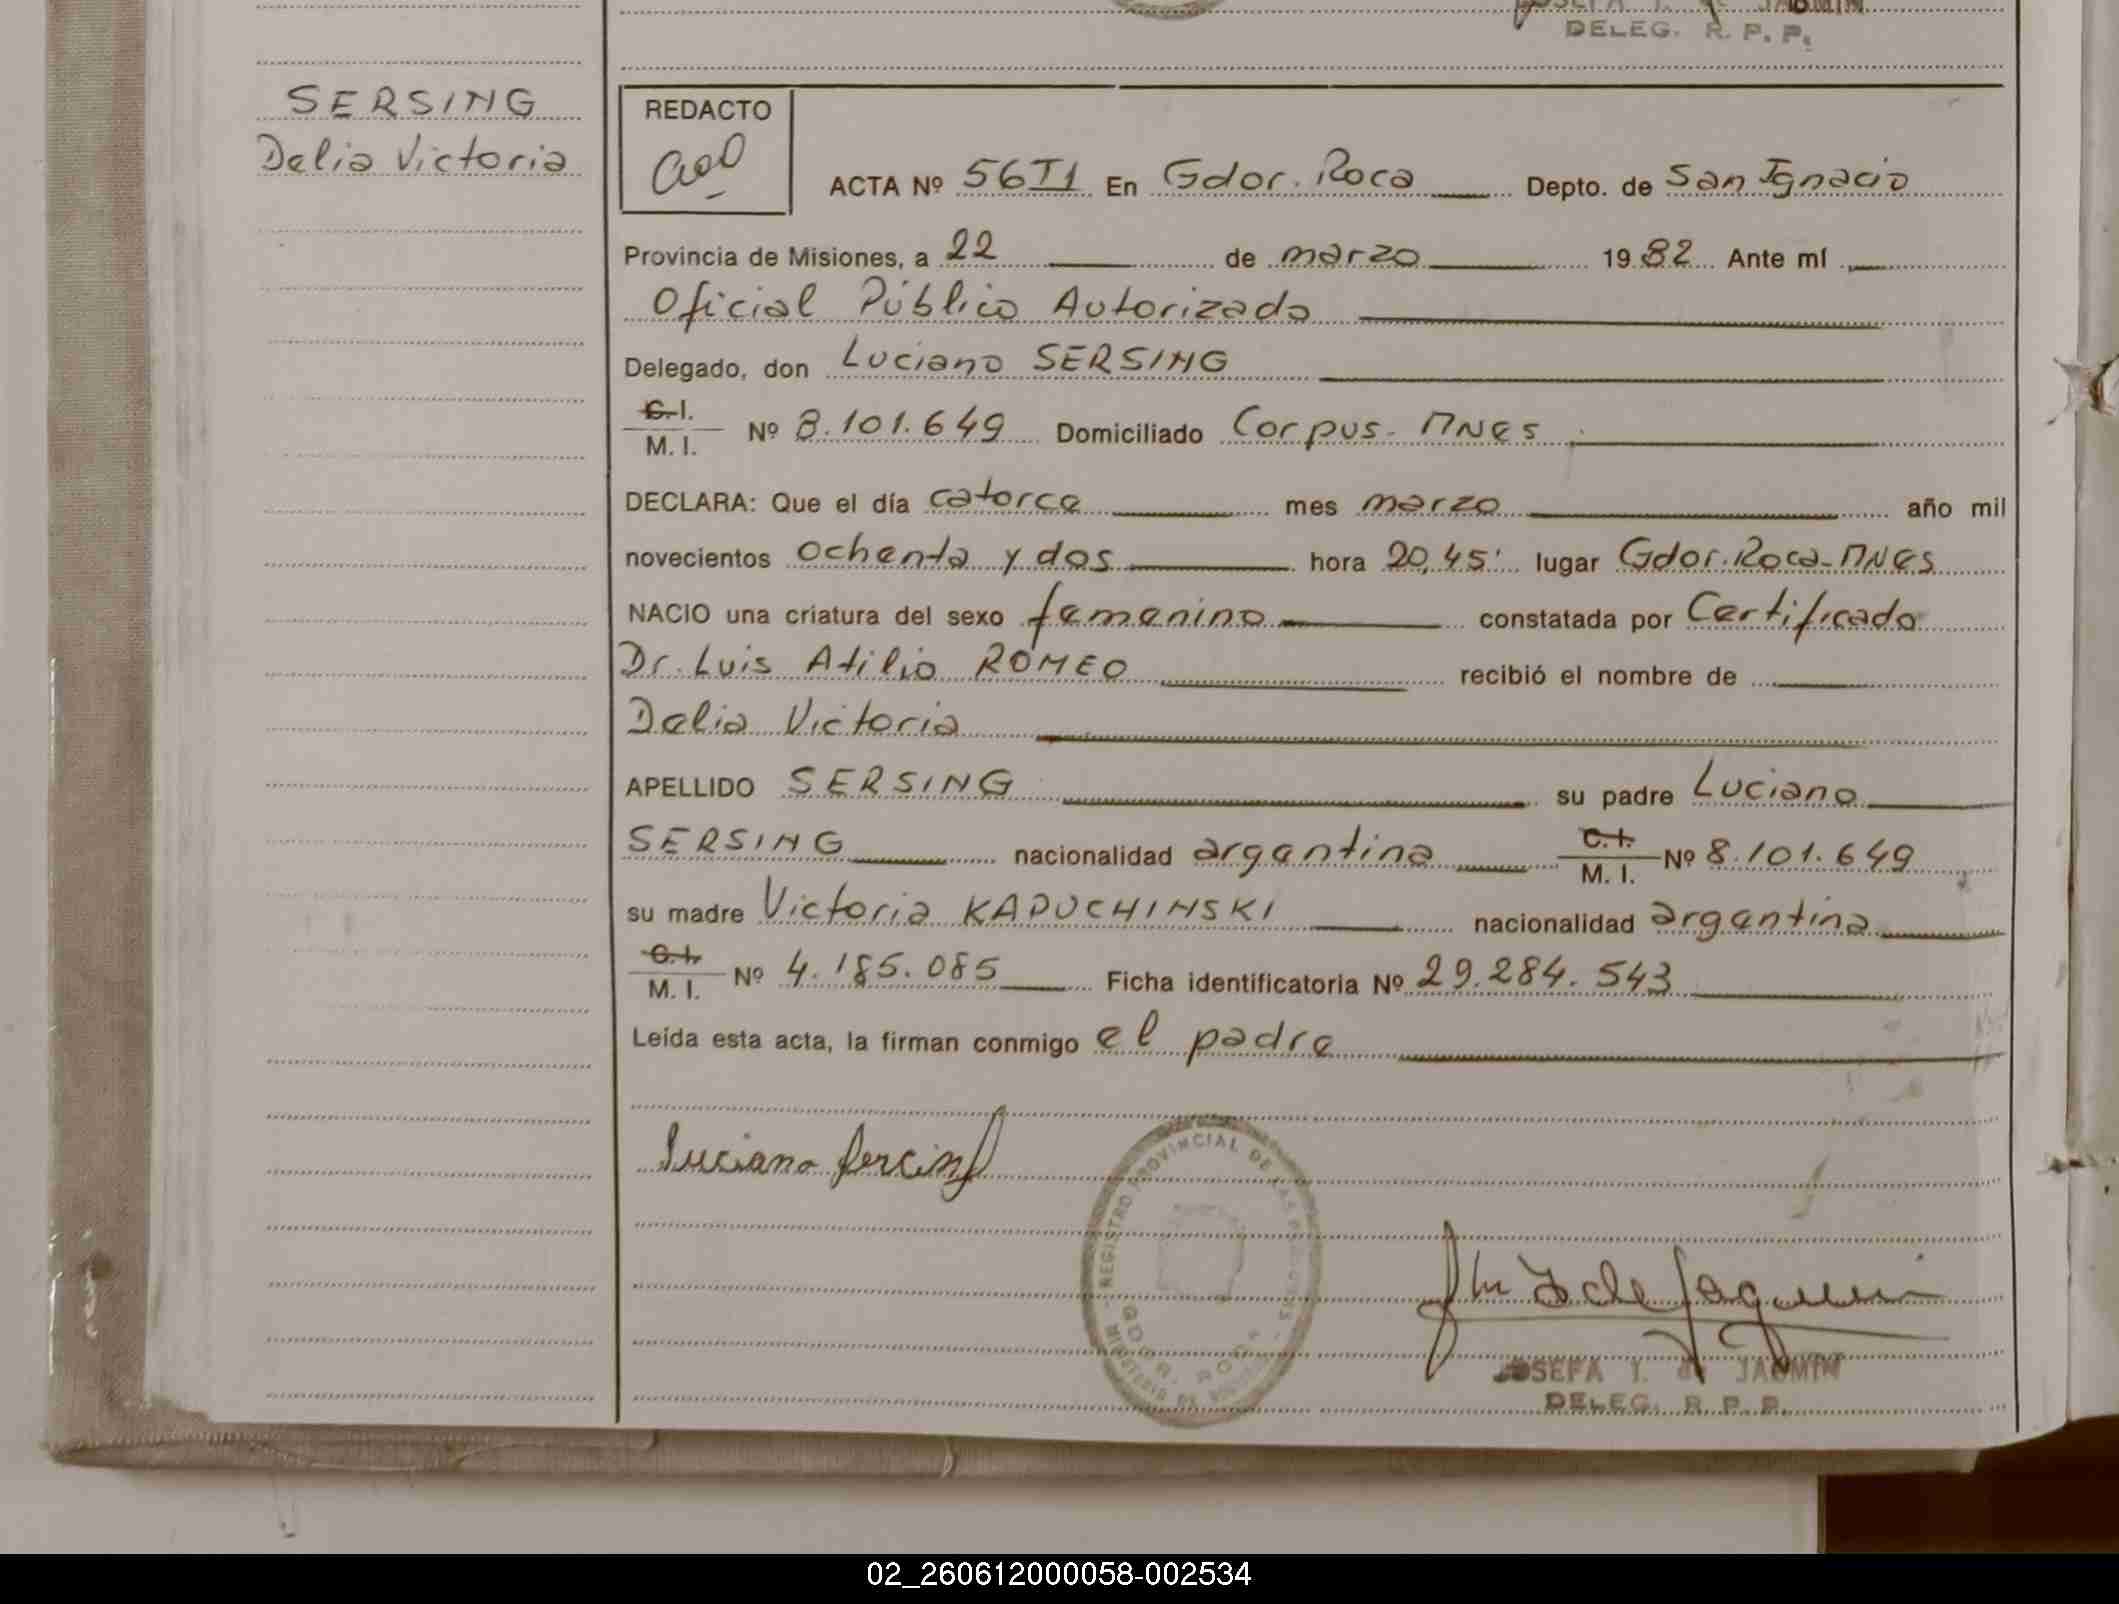 DELEG. R. P. P.
SERSING
Delia Victoria
REDACTO
ACTA Nº 56T1 En Gdor. Roca Depto. de San Ignacio
Provincia de Misiones, a 22 de marzo 1982 Ante mí
Oficial Público Autorizado
Delegado, don Luciano SERSING
C.I.
M. I. Nº 8.101.649 Domiciliado Corpus - MNES
DECLARA: Que el día catorce mes marzo año mil
novecientos ochenta y dos hora 20,45' lugar Gdor. Roca - MNES
NACIO una criatura del sexo femenino constatada por Certificado
Dr. Luis Atilio ROMEO recibió el nombre de
Delia Victoria
APELLIDO SERSING su padre Luciano
SERSING nacionalidad argentina C.I. M. I. Nº 8.101.649
su madre Victoria KAPUCHINSKI nacionalidad argentina
C.I.
M. I. Nº 4.185.085 Ficha identificatoria Nº 29.284.543
Leída esta acta, la firman conmigo el padre
Luciano Sercing
REGISTRO PROVINCIAL DE LAS PERSONAS
GDOR. ROCA
JOSEFA I. de JAQMIN
DELEG. R. P. P.
02_260612000058-002534